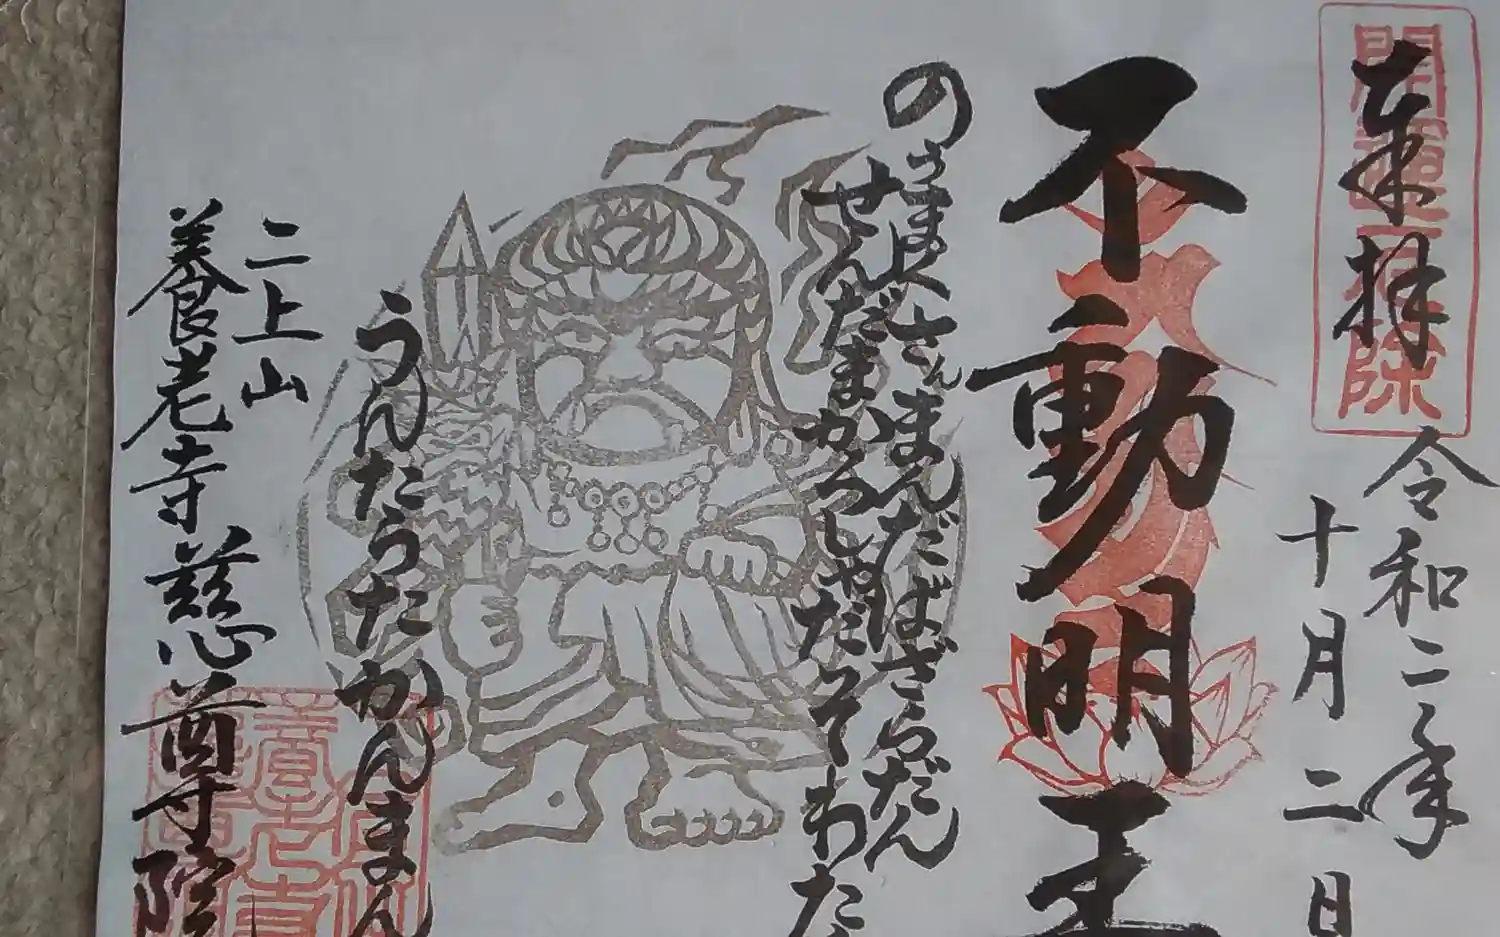 奉拝
開運厄除
令和二年
十月二日
不動明王
のうまくさんまんだばざらだん
せんだまかろしゃだそわた
うんたらたかんまん
二上山
養老寺 慈尊院